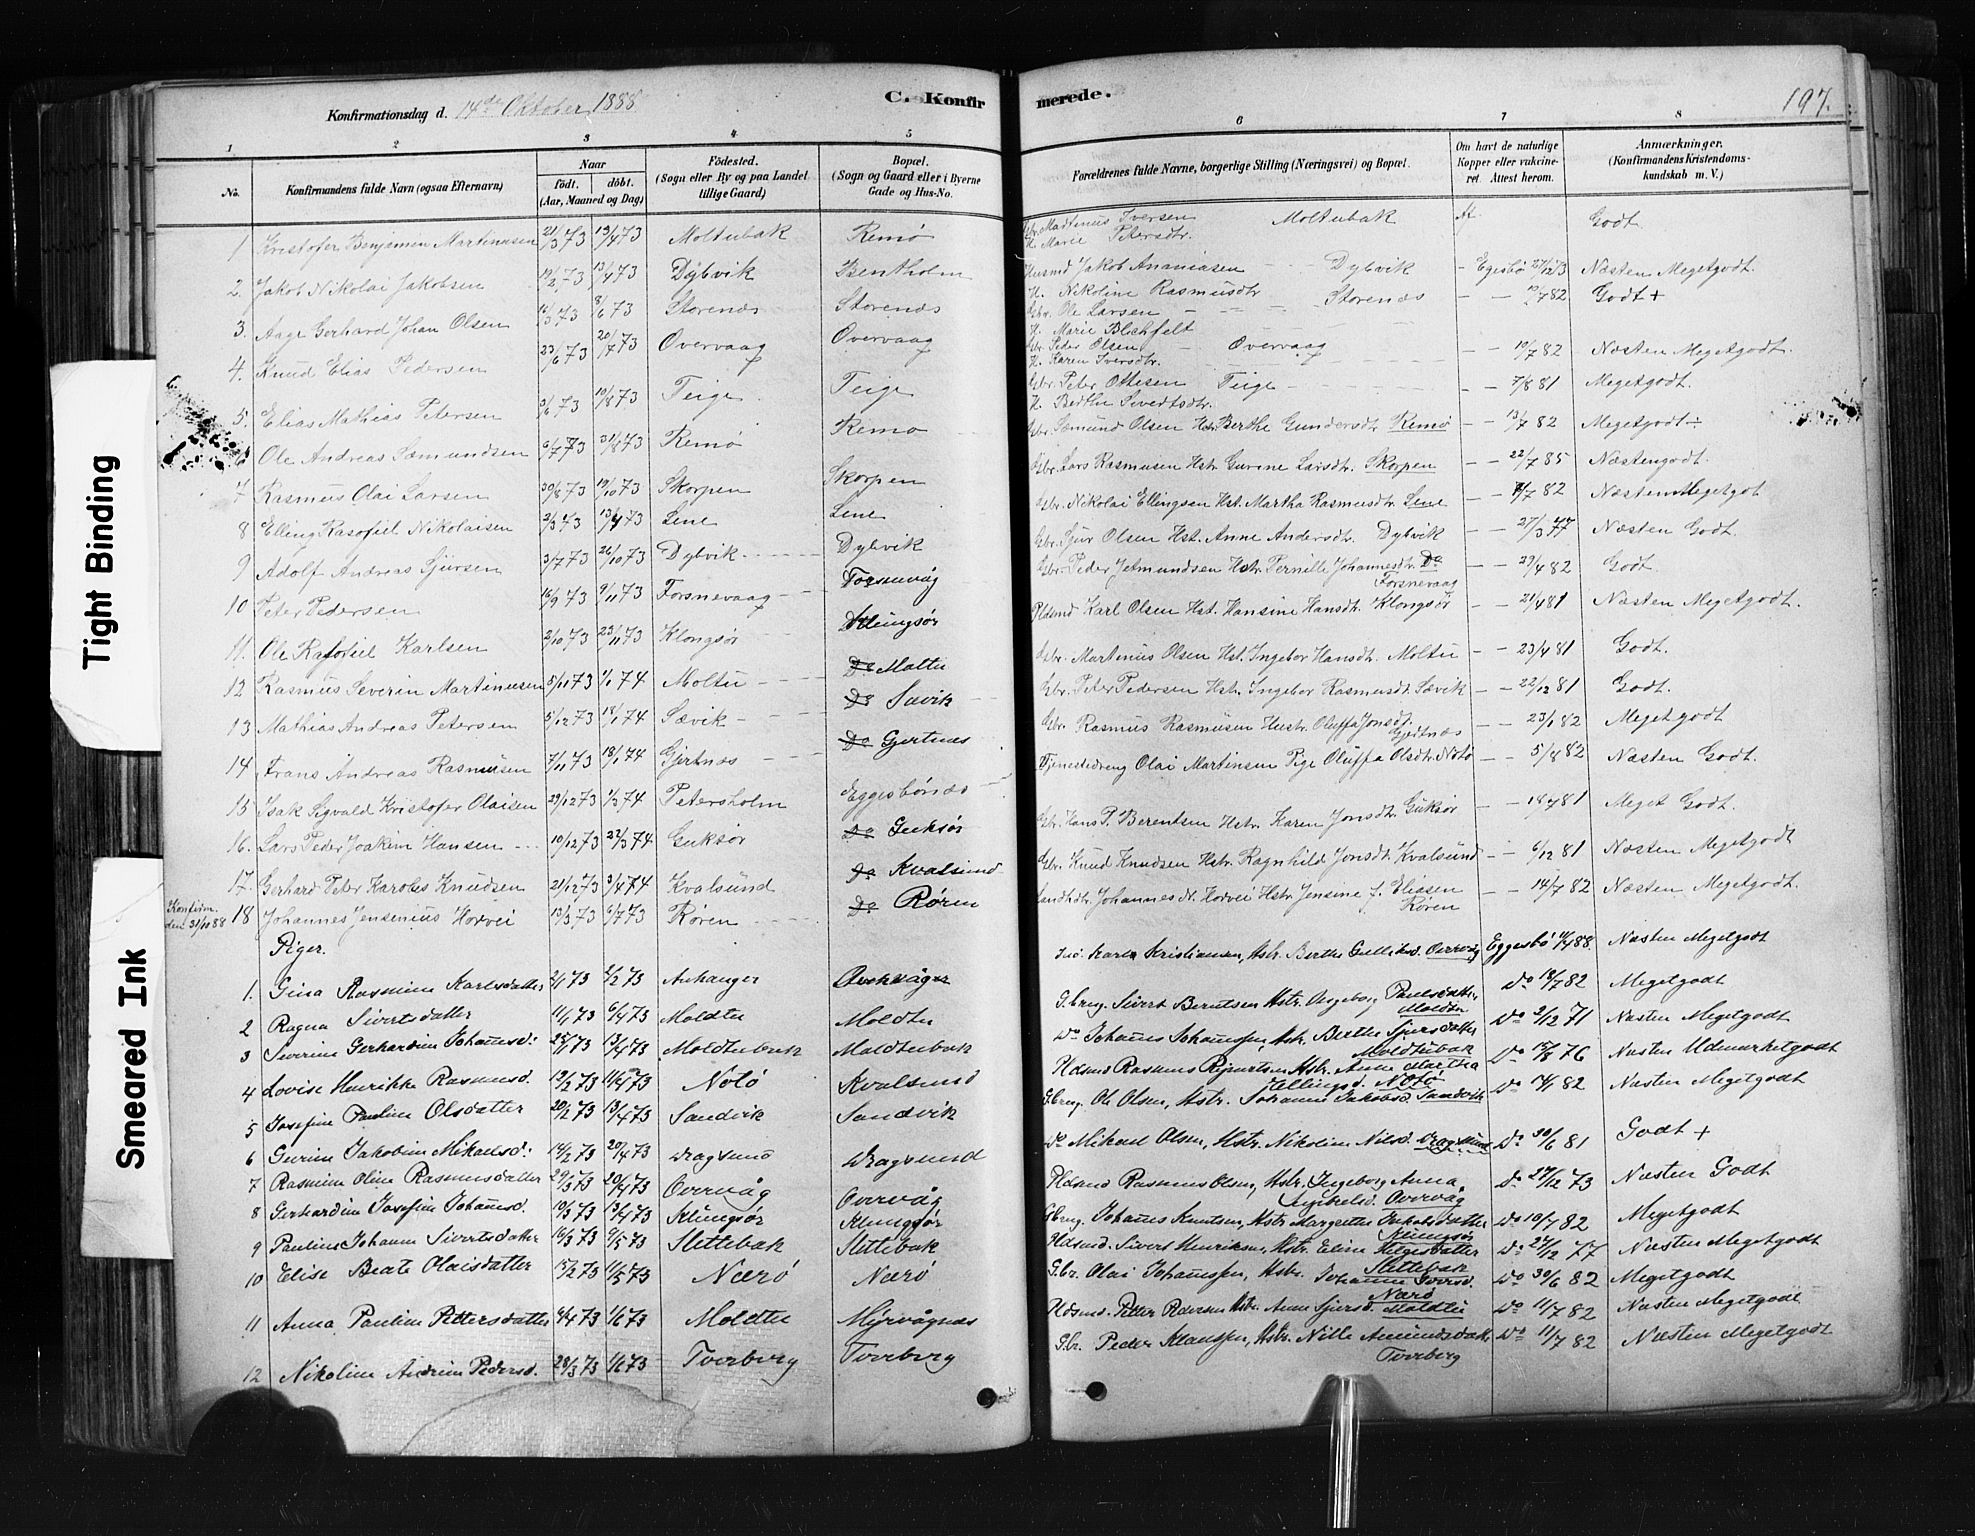 Konfirmationsdag d. 14de Oktober 1888.
C. Konfirmerede.
197.
1 2 3 4 5 6 7 8
No.
Konfirmandens fulde Navn (ogsaa Efternavn)
Naar født. døbt. (Aar, Maaned og Dag)
Fødested. (Sogn eller By og paa Landet tillige Gaard)
Bopæl. (Sogn og Gaard eller i Byerne Gade og Hus-No.
Forældrenes fulde Navne, borgerlige Stilling (Næringsvei) og Bopæl.
Om havt de naturlige Kopper eller vakcineret. Attest herom.
Anmærkninger. (Konfirmandens Kristendomskundskab m. V.)
1 Kristofer Benjamin Martinusen 21/3 73 19/4 73 Moltubak Remø Gbr. Martinus Iversen H. Marie Petersdtr. Moltubak At. Godt.
2. Jakob Nikolai Jakobsen 19/2 73 13/4 73 Dybvik Bentholm Husmd Jakob Ananiasen H. Nikoline Rasmusdtr Dybvik - Egesbö 27/12 73 Næsten Megetgodt.
3. Aage Gerhard Johan Olsen 16/3 73 8/6 73 Storenæs Storenæs Gbr. Ole Larsen H. Marie Blichfelt Storenæs - - 19/7 82 Godt +
4. Knud Elias Pedersen 23/6 73 20/7 73 Overvaag Overvaag Gbr. Peder Olsen H. Karen Iversdtr. Overvaag - 19/7 82 Næsten Megetgodt.
5. Elias Mathias Petersen 9/6 73 10/8 73 Teige Teige Gbr. Peter Ottesen H. Berthe Sivertsdtr. Teige - - 7/8 81 Megetgodt.
6 Ole Andreas Sæmundsen 6/7 73 31/8 73 Remø Remø Gbr. Sæmund Olsen Hstr. Berthe Gundersdt. Remø - - 13/7 82 Megetgodt ÷
7 Rasmus Olai Larsen 30/8 73 19/10 73 Skorpen Skorpen Gbr. Lars Rasmusen Hstr. Gurine Larsdtr. Skorpen - - 22/7 85 Næstengodt.
8 Elling Rasofiel Nikolaisen 2/3 73 13/4 73 Lene Lene Gbr. Nikolai Ellingsen Hst. Martha Rasmusdtr. Lene - - 7 82 Næsten Megetgodt
9 Adolf Andreas Sjursen 3/7 73 26/10 73 Dybvik Dybvik Gbr. Sjur Olsen Hst. Anne Andersdtr. Dybvik - - 27/3 77 Næsten Godt.
10 Peter Pedersen 16/9 73 9/11 73 Forsnevaag Forsnevåg Gbr. Peder Jetmundsen Hstr. Pernille Johannesdtr. Do Forsnevaag - - 29/4 82 Godt.
11. Ole Rafofiel Karlsen 2/10 73 23/11 73 Klongsør Klungsør Pldsmd Karl Olsen Hst. Hansine Hansdt. Klongsør - - 21/4 81 Næsten Megetgodt.
12 Rasmus Severin Martinusen 8/11 73 1/1 74 Moltu Do Moltu Gbr. Martinus Olsen Hst. Ingebor Hansdt. Moltu - - 23/4 81 Godt.
13 Mathias Andreas Petersen 5/12 73 18/1 74 Sævik Do Sævik Gbr. Peter Pedersen Hstr. Ingebor Rasmusdt. Sævik - - 22/12 81 Godt.
14 Frans Andreas Rasmusen 7/11 73 18/1 74 Gjertnæs Do Gjertnæs Gbr. Rasmus Rasmusen Hustr. Oluffa Jonsdt. Gjertnæs - - 23/1 82 Megetgodt
15 Isak Sigvald Kristofer Olaisen 29/12 73 1/3 74 Petersholm Eggesbönæs Tjenestedreng Olai Martinsen Pige Oluffa Olsdtr. Notø - - 5/4 82 Næsten Godt.
16. Lars Peder Joakim Hansen 10/12 73 22/3 74 Guksør Do Guksør Gbr. Hans P. Berentsen Hstr. Karen Jonsdt. Guksør - - 18/4 81 Meget Godt.
17. Gerhard Peter Karolus Knudsen 21/12 73 3/4 74 Kvalsund Do Kvalsund Gbr. Knud Knudsen Hstr. Ragnhild Jonsdt. Kvalsund - - 6/12 81 Næsten Megetgodt
Konfirm. den 31/10 88 18 Johannes Jensenius Horvei 13/3 73 6/7 73 Røren Do Røren Landhdr. Johannes N. Horvei Hstr. Jensine f. Eliasen Røren - - 14/7 82 Næsten Megetgodt.
Piger.
1. Gina Rasmine Karlsdatter 2/1 73 2/2 73 Aurvåger Karl Kristiansen, Hstr. Berthe Gulliksd. Overvåg Eggesbö 11/4 88. Næsten Megetgodt
2 Ragna Sivertsdatter 11/1 73 6/4 73 Moldtu Moldtu G.brug. Sivert Berntsen Hstr. Ingeborg Paulsdatter, Moldtu Do 18/7 82 Megetgodt
3 Severine Gerhardine Johansd. 25/1 73 13/4 73 Moldtubak Moldtubak Do Johannes Johannessen, Hstr. Berthe Sjursdatter Moldtubak Do 2/12 71 Næsten Megetgodt
4 Lovise Henrikke Rasmusd. 19/2 73 11/4 73 Notø Kvalsund Hdsmd Rasmus Hstr. Anne Martha Hellingsd. Notø Do 15/8 76 Næsten Udmærketgodt
5 Josefine Pauline Olsdatter 20/2 73 13/4 73 Sandvik Sandvik G.brug. Ole Olsen, Hstr. Johanne Jakobsd. Sandvik Do 82 Næsten Megetgodt
6 Gurine Jakobine Mikaelsd. 14/2 73 20/4 73 Dragsund Dragsund Do Mikael Olsen, Hstr. Nikoline Nilsd. Dragsund Do 30/6 81 Godt +
7 Rasmine Oline Rasmusdatter 29/3 73 20/4 73 Overvåg Overvåg Pldsmd Rasmus Olsen, Hstr. Ingeborg Anna Overvåg Do 27/12 73 Næsten Godt
8 Gerhardine Josefine Johansd. 10/3 73 13/4 73 Klungsør Klungsør G.brug. Johannes Knutsen, Hstr. Margrethe Jakobsdatter Klungsør Do 10/7 82 Megetgodt
9 Pauline Johanne Sivertsdatter 16/3 73 9/5 73 Slettebak Slettebak Hdsmd. Sivert Henriksen, Hstr. Eline Helgesdatter Slettebak Do 24/12 77 Næsten Megetgodt
10 Elise Beate Olaisdatter 15/2 73 11/5 73 Nærø Nærø G.br. Olai Johannessen, Hstr. Johanne Iversd. Nærø Do 30/6 82 Megetgodt
11 Anna Pauline Pettersdatter 6/4 73 1/6 73 Moldtu Myrvågnæs Hdsmd. Petter Pedersen Hstr. Anne Sjursd. Moldtu Do 11/7 82 Næsten Megetgodt
12 Nikoline Andrine Pedersd. 28/3 73 1/6 73 Tverberg Tverberg G.br. Peder Klaussen, Hstr. Nille Amundsdatr. Tverberg Do 11/7 82 Næsten Megetgodt
Tight Binding
Smeared Ink